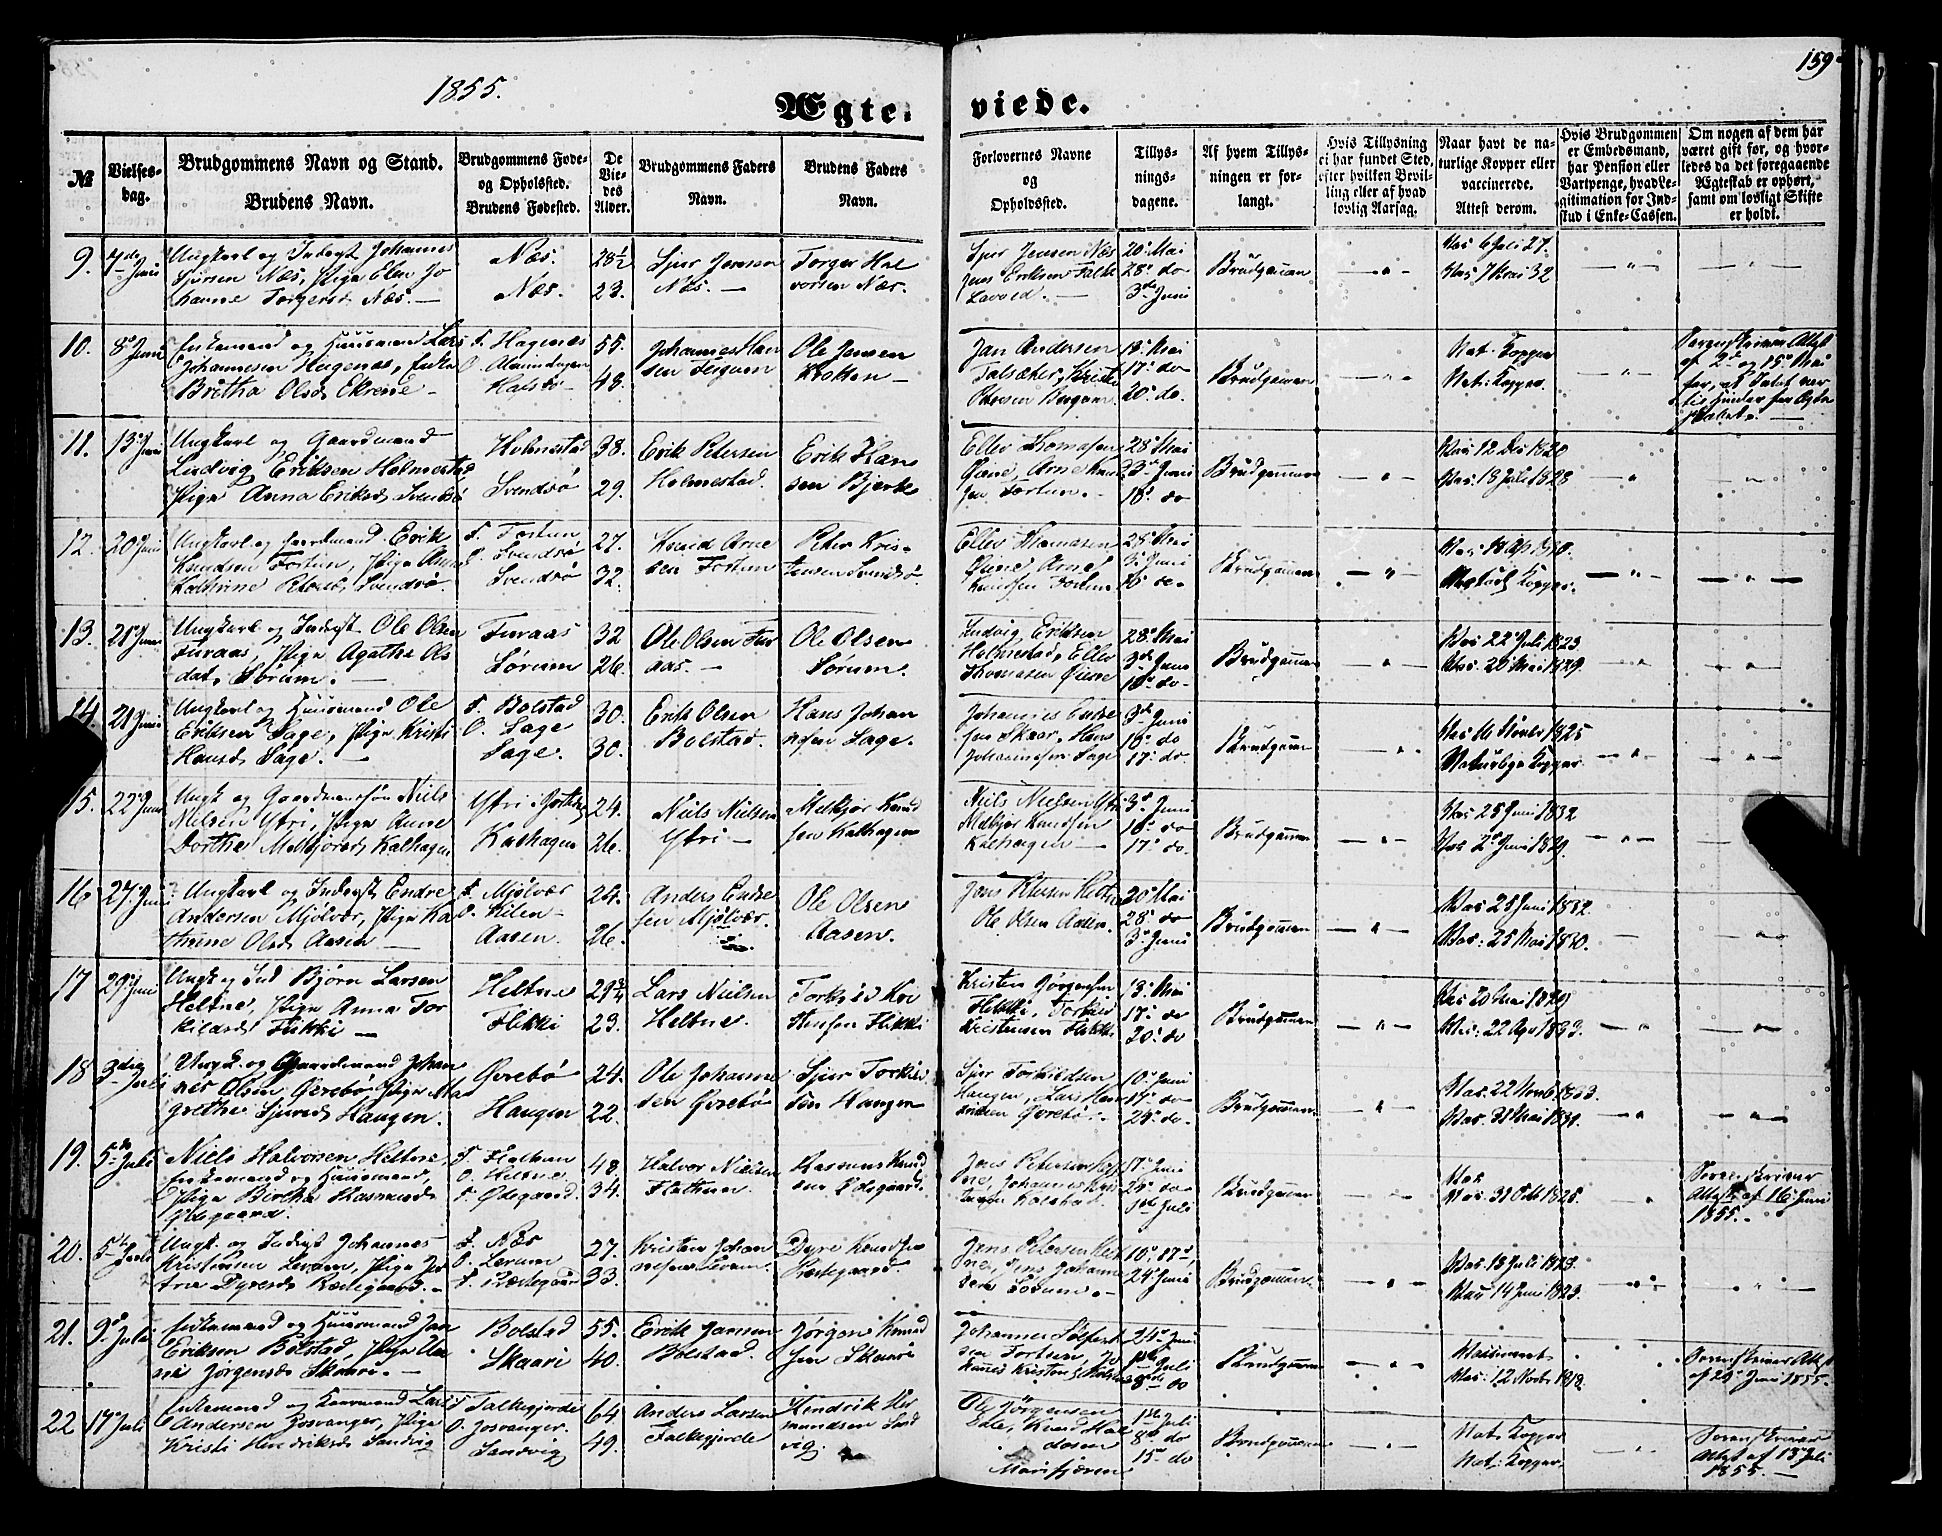 159
1855.
Ægteviede.
№
Vielses-
dag.
Brudgommens Navn og Stand.
Brudens Navn.
Brudgommens Føde-
og Opholsfted.
Brudens Fødested.
De
Vie-
des
Alder.
Brudgommens Faders
Navn.
Brudens Faders
Navn.
Forlovernes Navne
og
Opholdsfted.
Tillys-
nings-
dagene.
Af hvem Tillys-
ningen er for-
langt.
Hvis Tillysning
ei har fundet Sted,
efter hvilken Bevil-
ling eller af hvad
lovlig Aarsag.
Naar havt de na-
turlige Kopper eller
vaccinerede.
Attest derom.
Hvis Brudgommen
er Embedsmand,
har Pension eller
Vartpenge, hvad Le-
gitimation for Ind-
skud i Enke-Cassen.
Om nogen af dem har
været gift før, og hvor-
ledes da det foregaaende
Ægteskab er ophørt,
samt om lovligt Skifte
er holdt.
9. 7de Juni
Ungkarl og Inderst Johannes
Sjursen Næs, Pige Elen Jo
hanne Torgersd. Næs. —
Næs.
Næs.
28½
23.
Sjur Jensen
Næs. —
Torger Hal
vorsen Næs.
Sjur Jensen Næs
Jens Eriksen
20. Mai
28. do
3de Juni
Brudgommen
Vac 6 Juli 27.
Vac 7 Mai 32
10. 8de Juni
Enkemand og Huusmand Lars
Johannesen Hagenæs, Enke
Britha Olsd. Ekrene —
F. Hagenæs
O.
Kalstø
55.
48.
Johannes Han
sen Feigum
Ole Jensen
Kroken —
Jan Andersen
13. Mai
17. do
20. do.
Brudgommen
Nat. Kopper
Nat. Kopper.
11. 13. Juni
Ungkarl og Gaardmand
Ludvig Eriksen Holmestad
Pige Anna Eriksd. Svensø
Holmestad
Svendsø
38.
29.
Erik Petersen
Holmestad.
Erik Han
sen Bjerk
Ellev Thomasen
Øvne, Arne Knud
sen Fortun.
28. Mai
3de Juni
10. do
Brudgommen
Vac 12 Dec 1820
Vac. 18 Juli 1828
12. 20 Juni
Ungkarl og Gaardmand Erik
Knudsen Fortun, Pige Anne
Kathrine Petersd. Svendsø.
F. Fortun
O. Svendsø
Svendsø
27.
32.
Knud Arne
sen Fortun
Peter Kris-
tensen Svendsø.
Ellev Thomasen
Øvne, Arne
Knudsen Fortun
28. Mai
3. Juni
10. do.
Brudgommen
Naturl Kopper.
13. 21. Juni
Ungkarl og Inderst Ole Olsen
Furaas, Pige Agatha Ols
dat. Sørum. —
Furaas
Sørum
32
26.
Ole Olsen Fur
aas. —
Ole Olsen
Sørum.
Ludvig Eriksen
Holmestad, Ellev
Thomasen Øvne
28. Mai
3de Juni
10. do.
Brudgommen
Vac. 22 Juli 1823
14. 21 Juni
Ungkarl og Huusmand Ole
Eriksen Sage, Pige Kristi
Hansd. Sage. —
F. Bolstad
O. Sage
Sage.
30.
30.
Erik Olsen
Bolstad.
Hans Johan
nesen Sage.
Johannes Endre
sen Skaar, Hans
Johannesen Sage
3de Juni
10. do
17. do.
Brudgommen
Vac 16 Novbr 1825
Naturlige Kopper
15. 22 Juni
Ungk og Gaardmandssøn Niels
Nielsen Ytri, Pige Anne
Dorthe Melkjorsd. Kalhagen
Ytri
Kalhagen
24.
26.
Niels Nielsen
Ytri —
Melkjor Knud
sen Kalhagen
Niels Nielsen Ytri
Melkjor Knudsen
Kalhagen —
3. Juni
10. do
17. do.
Brudgommen
Vac 25 Juni 1832
Vac 2 Juni 1829.
16 27. Juni
Ungkarl og Inderst Endre
Andersen Mjølvær, Pige Ka
thrine Olsd. Aasen —
F. Mjølvær
O. Kilen —
Aasen.
24.
26.
Anders Endre
sen Mjølvær.
Ole Olsen
Aasen.
Jens Petersen
Ole Olsen Aasen.
20 Mai
28. do
3. Juni
Brudgommen
Vac. 25 Juni 1832.
Vac: 25 Mai 1830.
17 29. Juni
Ungk og Ind Bjørn Larsen
Heltne, Pige Anna Tor
kildsd. Flikki —
Heltne
Flikki
29¾
23.
Lars Nielsen
Heltne.
Torkild Kri
stensen Flikki
Kristen Jørgensen
Flikki, Torkild
Kristensen Flikki
13. Mai
17. do
20. do
Brudgommen
Vac 20 Mai 1829
Vac: 22 Apr 1833.
18 3die Juli
Ungk. og Gaardmand Johan
nes Olsen Øvrebø, Pige Ma
grethe Sjursd. Haugen.
Øvrebø
Haugen
24.
22.
Ole Johanne
sen Øvrebø
Sjur Torkild
sen Haugen
Sjur Torkildsen
Haugen, Lars Han
sen Øvrebø.
10. Juni
17. do
24. do.
Brudgommen
Vac. 22 Novb. 1833.
19. 5te Juli
Niels Halvorsen Heltne,
Enkemand og Huusmand,
Pige Birtha Rasmusd.
Ødegaard.
F. Flathun
O. Heltne
F. Ødegaard.
48.
34.
Halvor Nielsen
Flathun.
Rasmus Knud
sen Ødegaard.
17. Juni
24. do
1ste Juli
Brudgommen
Vac
Vac. 31 Oct 1825.
Sorenskriver
Attest af 16 Juni
1855.
20. 5te Juli
Ungk. og Inderst Johannes
Kristensen Lerum, Pige Pe
tra Dyresd. Prestegaard. —
F. Næs
O. Lerum
F. Prestegaard
27.
33.
Kristen Johan
nesen Lerum.
Dyre Knudsen
Prestegaard.
10. 17.
24 Juni
Brudgommen.
Vac. 14 Juni 1823.
21. 9. Juli
Enkemand og Huusmand Jan
Eriksen Bolstad, Pige An
ne Jørgensd. Skaari. —
Bolstad
Skaari
55.
40.
Erik Jansen
Bolstad.
Jørgen Knud
sen Skaari
24. Juni
1ste Juli
8de do
Brudgommen
Sorenskriver Attest
af 29. Juni 1855.
22 17. Juli
Enkemand og Huusmand Lars
Andersen Josvanger, Pige
Kristi Hendriksd. Sandvig
F. Falkegjerde
O. Josvanger.
Sandvig
64.
49.
Anders Larsen
Falkegjerde
Hendrik Her
mundsen Sand
vig.
Ole Jørgensen
Eide, Knud Hal
dosen
Marifjæren
1ste Juli
8de do
15. do
Brudgommen
Nat. Kopper
Nat. Kopper.
Sorenskriver
Attest af 13. Juli
1855. —